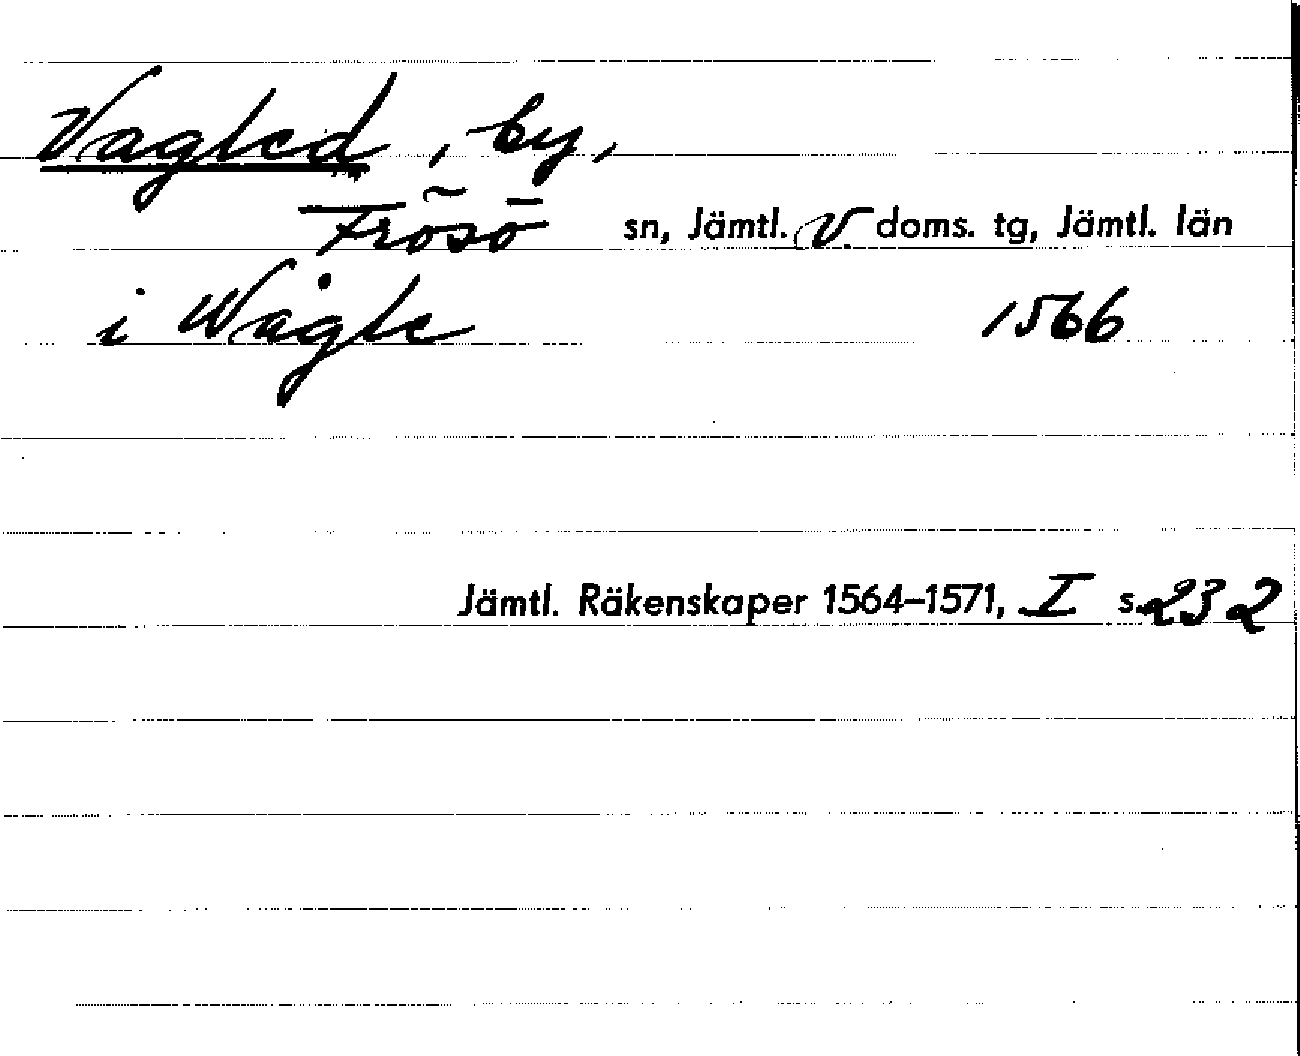 Vagled, by,
Frösö sn, Jämtl. V doms. tg, Jämtl. län
i Wågle 1566
Jämtl. Räkenskaper 1564–1571, I s. 232